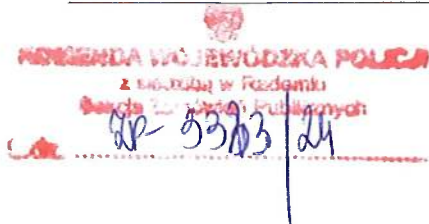 KOMENDA WOJEWÓDZKA POLICJI
z siedzibą w Radomiu
Zamówień Publicznych
ZP-3383/24